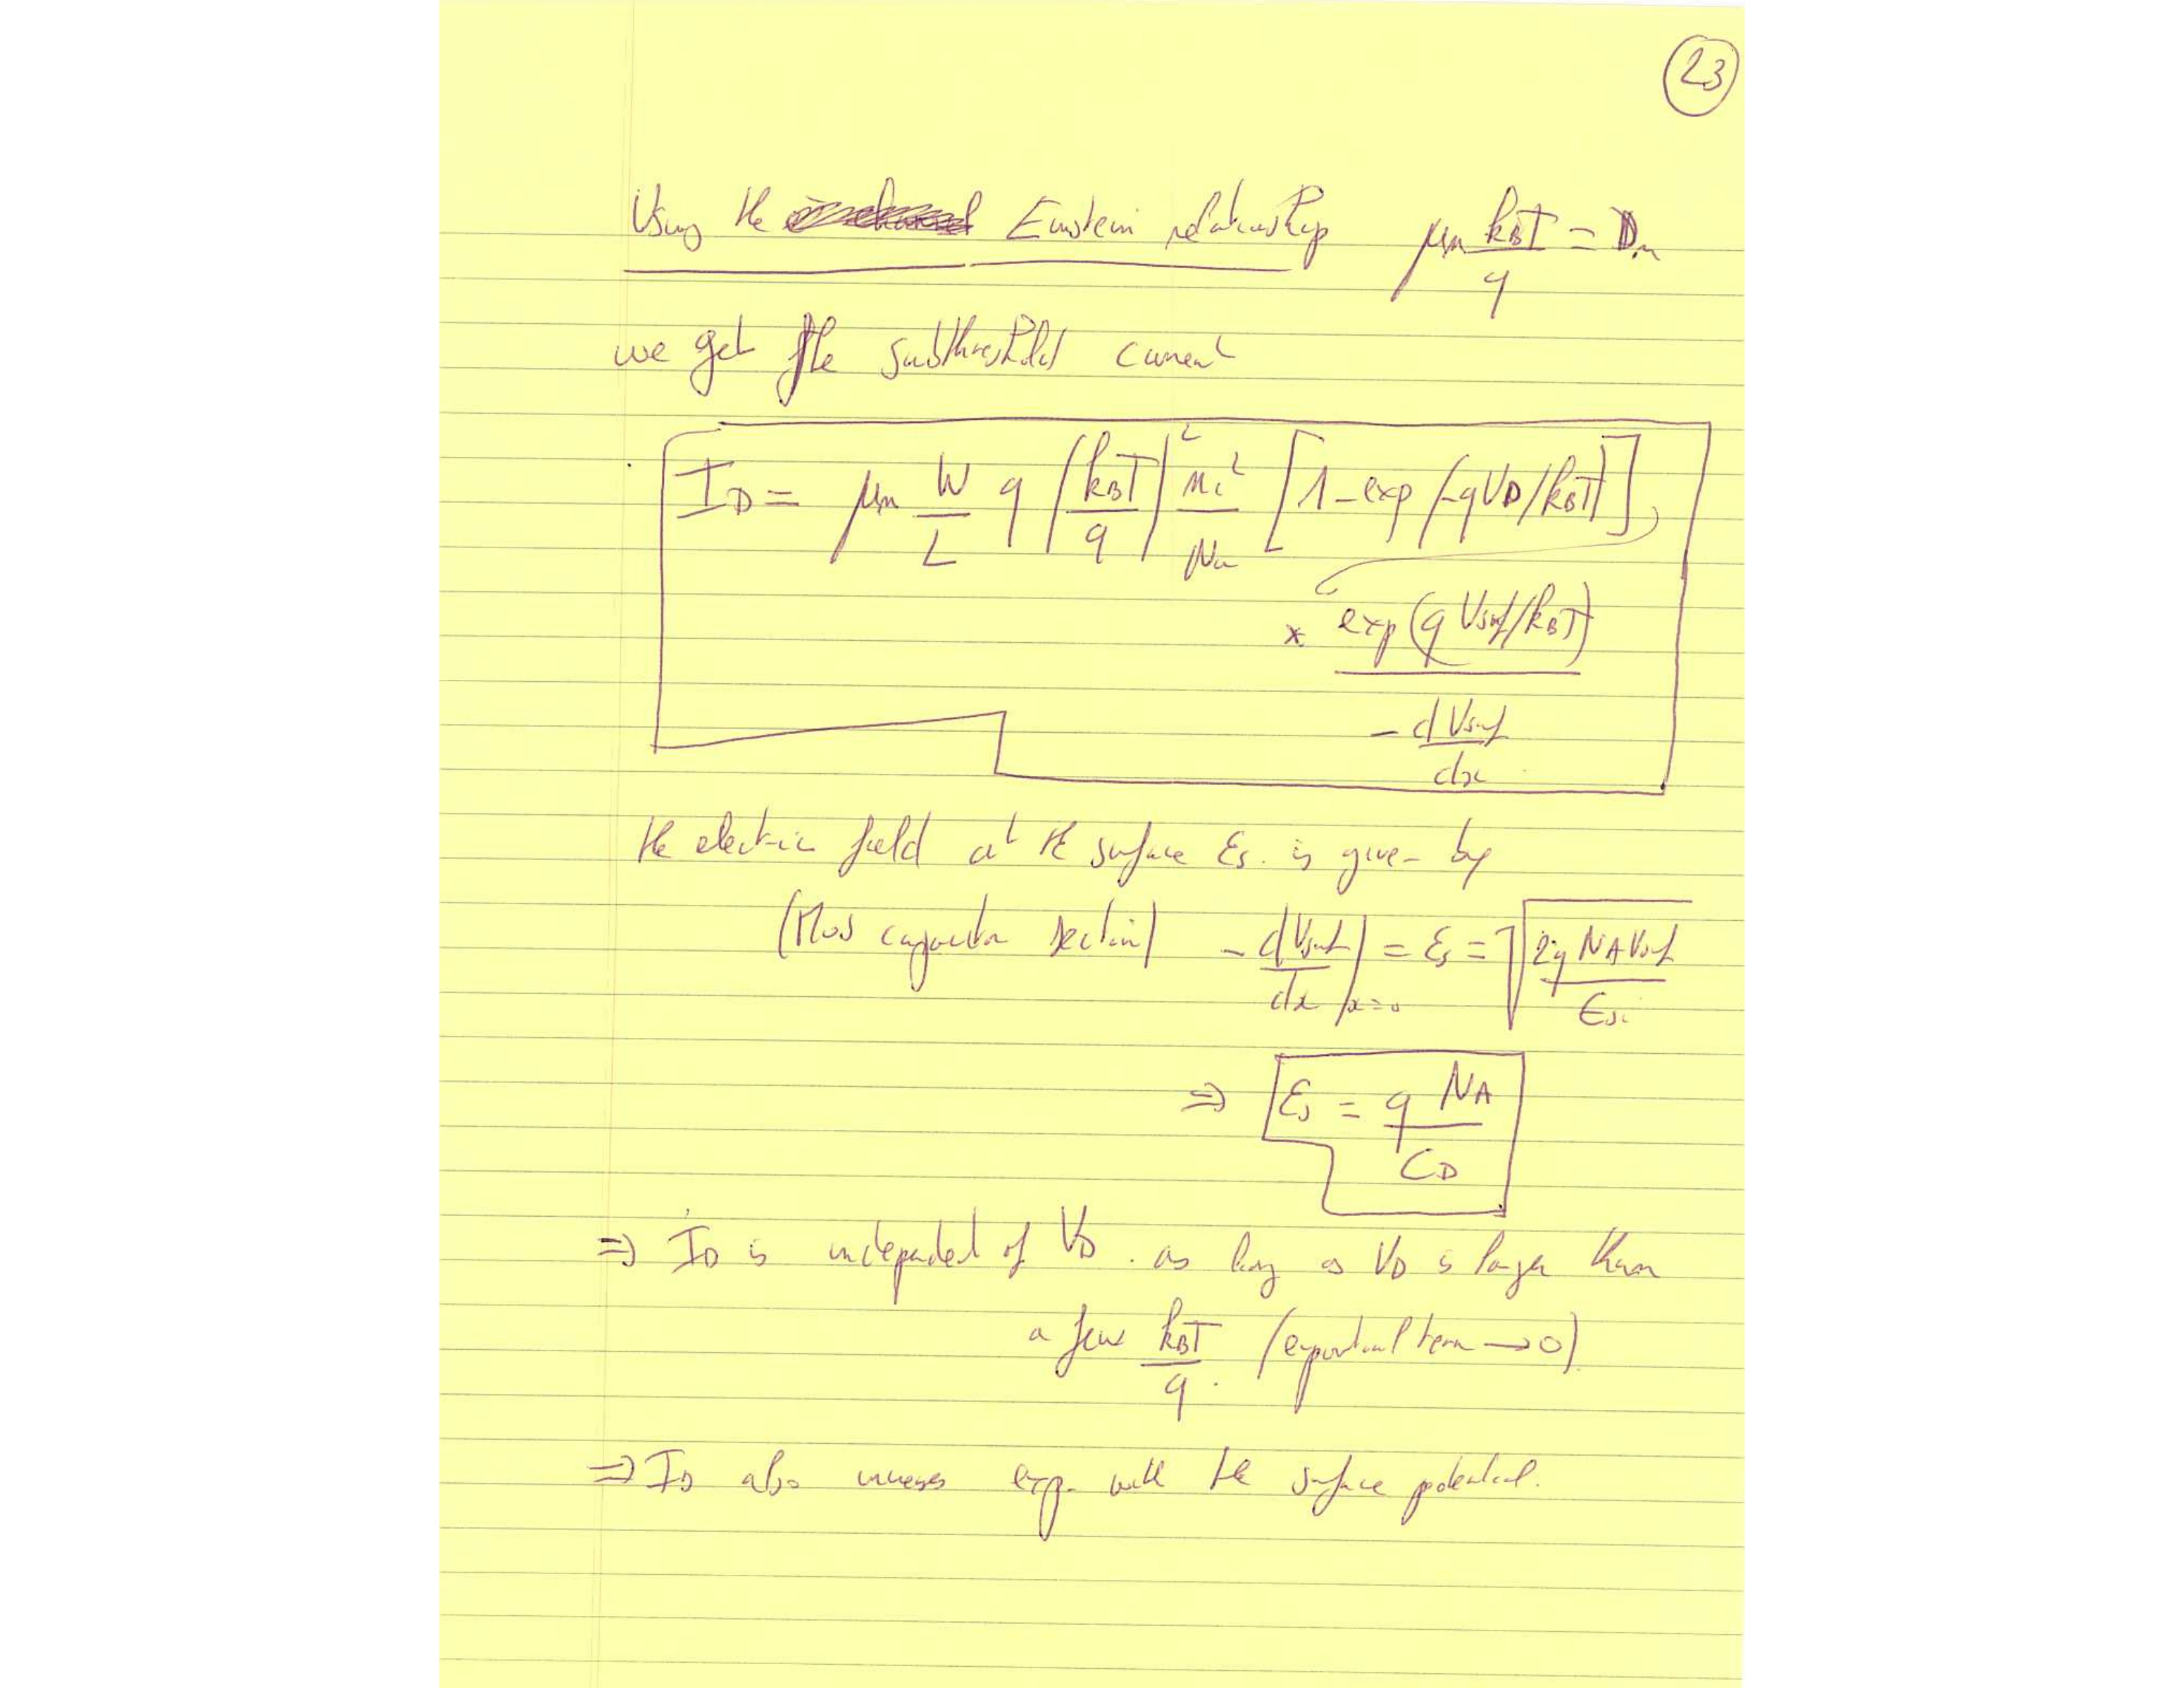 23
Using the Einstein relationship μn kBT/q = Dn
we get the subthreshold current
ID = μn W/L q (kBT/q)² ni²/Na [1-exp(-qVD/kBT)],
* exp(qVsurf/kBT)
- dVsurf/dx
the electric field at the surface Es. is given by
(Mos capacitor section) - dVsurf/dx |x=0 = Es = √(2q NA Vsurf/εsi)
⇒ Es = q NA/CD
⇒ ID is independent of VD . as long as VD is larger than
a few kBT/q . (exponential term → 0).
⇒ ID also increases exp. with the surface potential.